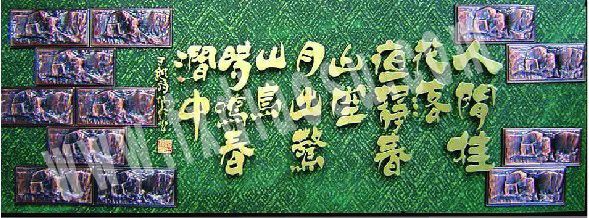 人閒桂
花落
夜静春
山空
月出驚
山鳥
时鳴春
澗中